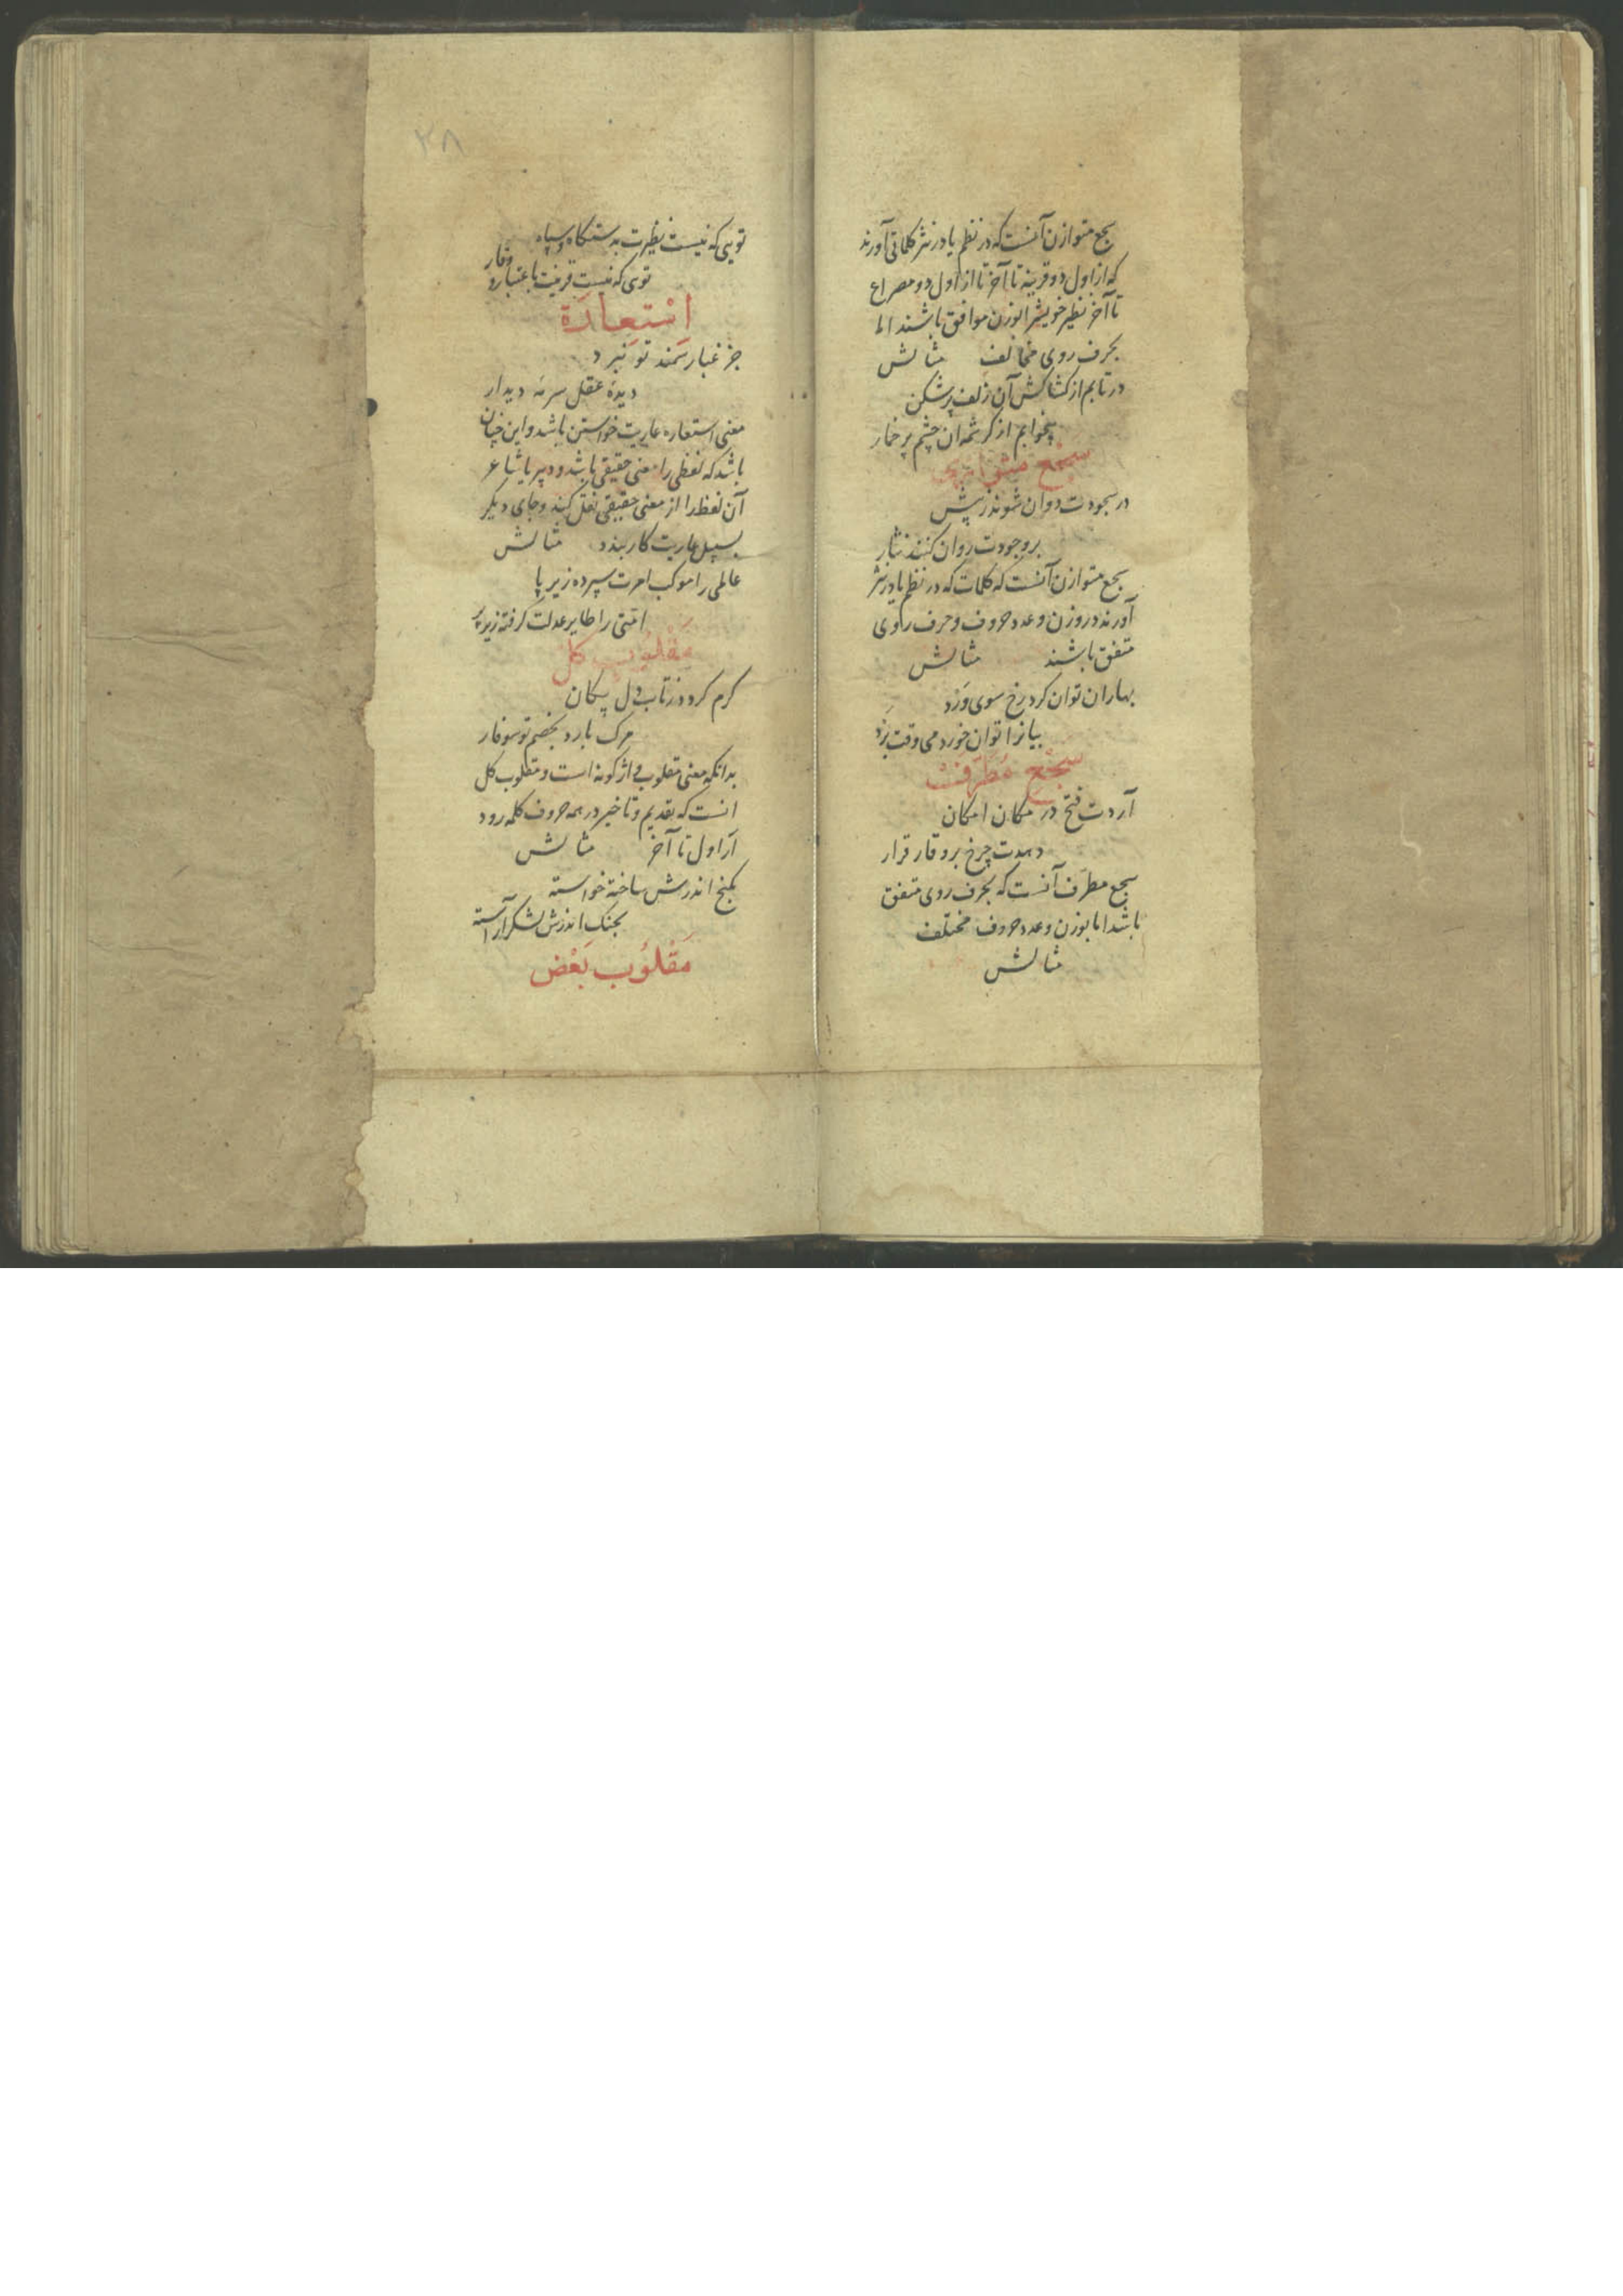 سجع متوازن آنست که در نظم یا در نثر کلماتی آورند
که از اول دو قرینه تا آخر تا از اول دو مصراع
تا آخر نظیر خویش را بوزن موافق باشند اما
بحرف روی مخالف مثالش
در تابم از کشاکش آن زلف پرشکن
بیخوابم از کرشمه ان چشم پر خمار
سجع متوازی
در سجودت دوان شوند ز پیش
بر وجودت روان کنند نثار
سجع متوازن آنست که کلمات که در نظم یا در نثر
آورند در وزن و عدد حروف و حرف راوی
متفق باشند مثالش
بهاران توان کرد رخ سوی ورد
بیانرا توان خورد می وقت برد
سجع مطرف
آردت فتح در مکان امکان
دهدت چرخ بر وقار قرار
سجع مطرف آنست که بحرف روی متفق
باشد اما بوزن و عدد حروف مختلف
مثالش
۲۸
تویی که نیست نظیرت به دستکاه و سپاه
توی که نیست قرینت باعتبار و وقار
استعارة
جز غبار سمند تو نبرد
دیده عقل سرمه دیدار
معنی استعاره عاریت خواستن باشد و این چنان
باشد که لفظی را معنی حقیقی باشد و دبیر یا شاعر
آن لفظ را از معنی حقیقی نقل کند و جای دیکر
بسبیل عاریت کار بندد مثالش
عالمی را موکب امرت سپرده زیر پا
امتی را طایر عدلت کرفته زیر پر
مقلوب کل
کرم کردد ز تاب دل پیکان
مرک بارد بخصم تو سوفار
بدانکه معنی مقلوب واژکونه است و مقلوب کل
انست که تقدیم و تاخیر در همه حروف کلمه رود
از اول تا آخر مثالش
بکنج اندرش ساخته خواسته
بجنک اندرش لشکر آراسته
مقلوب بعض